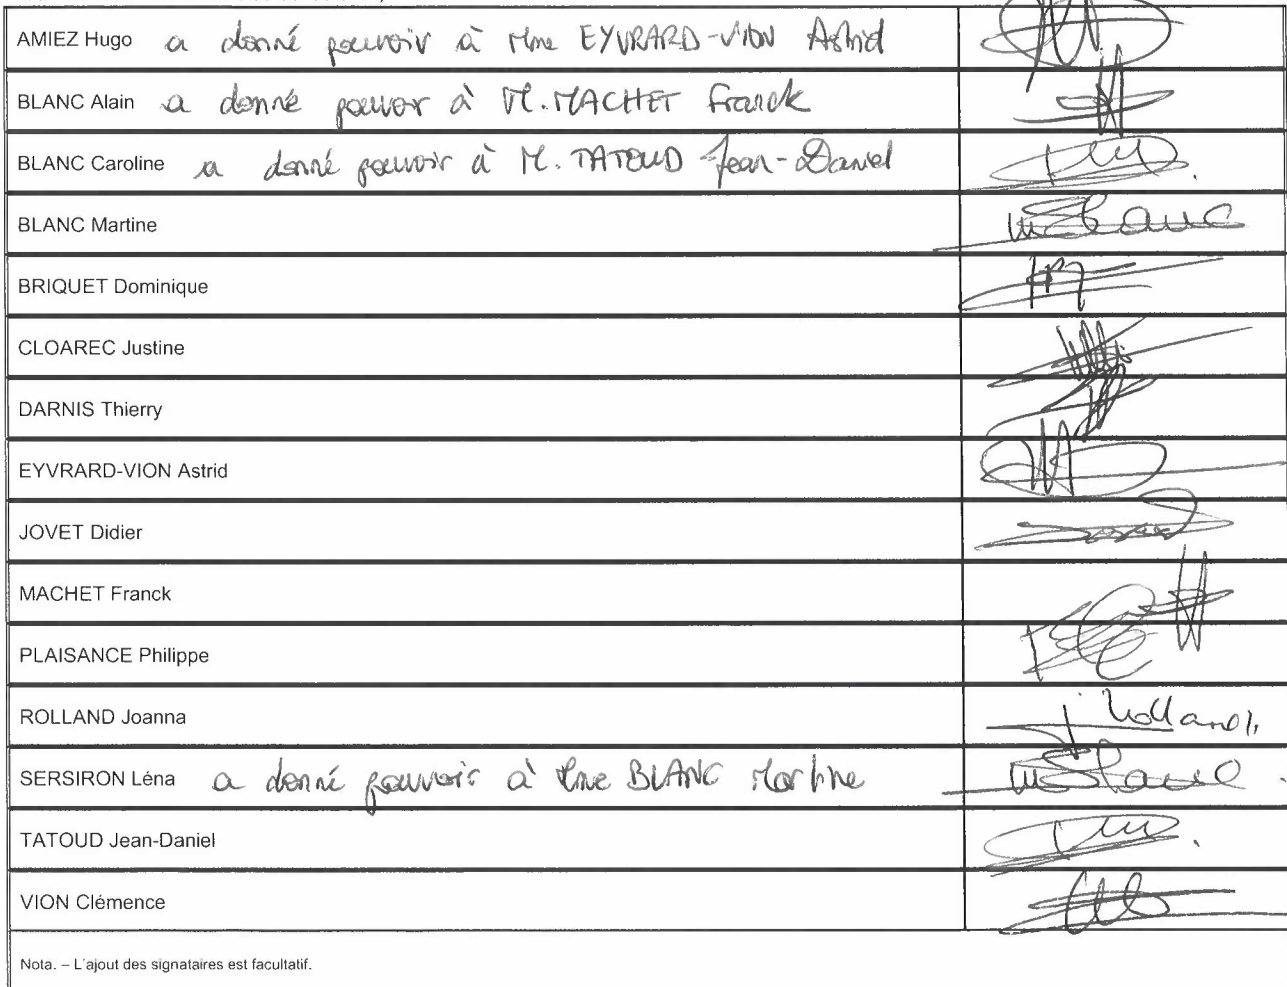 AMIEZ Hugo a donné pouvoir à Mme EYVRARD-VION Astrid
BLANC Alain a donné pouvoir à M. MACHET Franck
BLANC Caroline a donné pouvoir à M. TATOUD Jean-Daniel
BLANC Martine mBlanc
BRIQUET Dominique
CLOAREC Justine
DARNIS Thierry
EYVRARD-VION Astrid
JOVET Didier
MACHET Franck
PLAISANCE Philippe
ROLLAND Joanna j Rolland
SERSIRON Léna a donné pouvoir à Mme BLANC Martine mBlanc
TATOUD Jean-Daniel
VION Clémence
Nota. – L'ajout des signataires est facultatif.